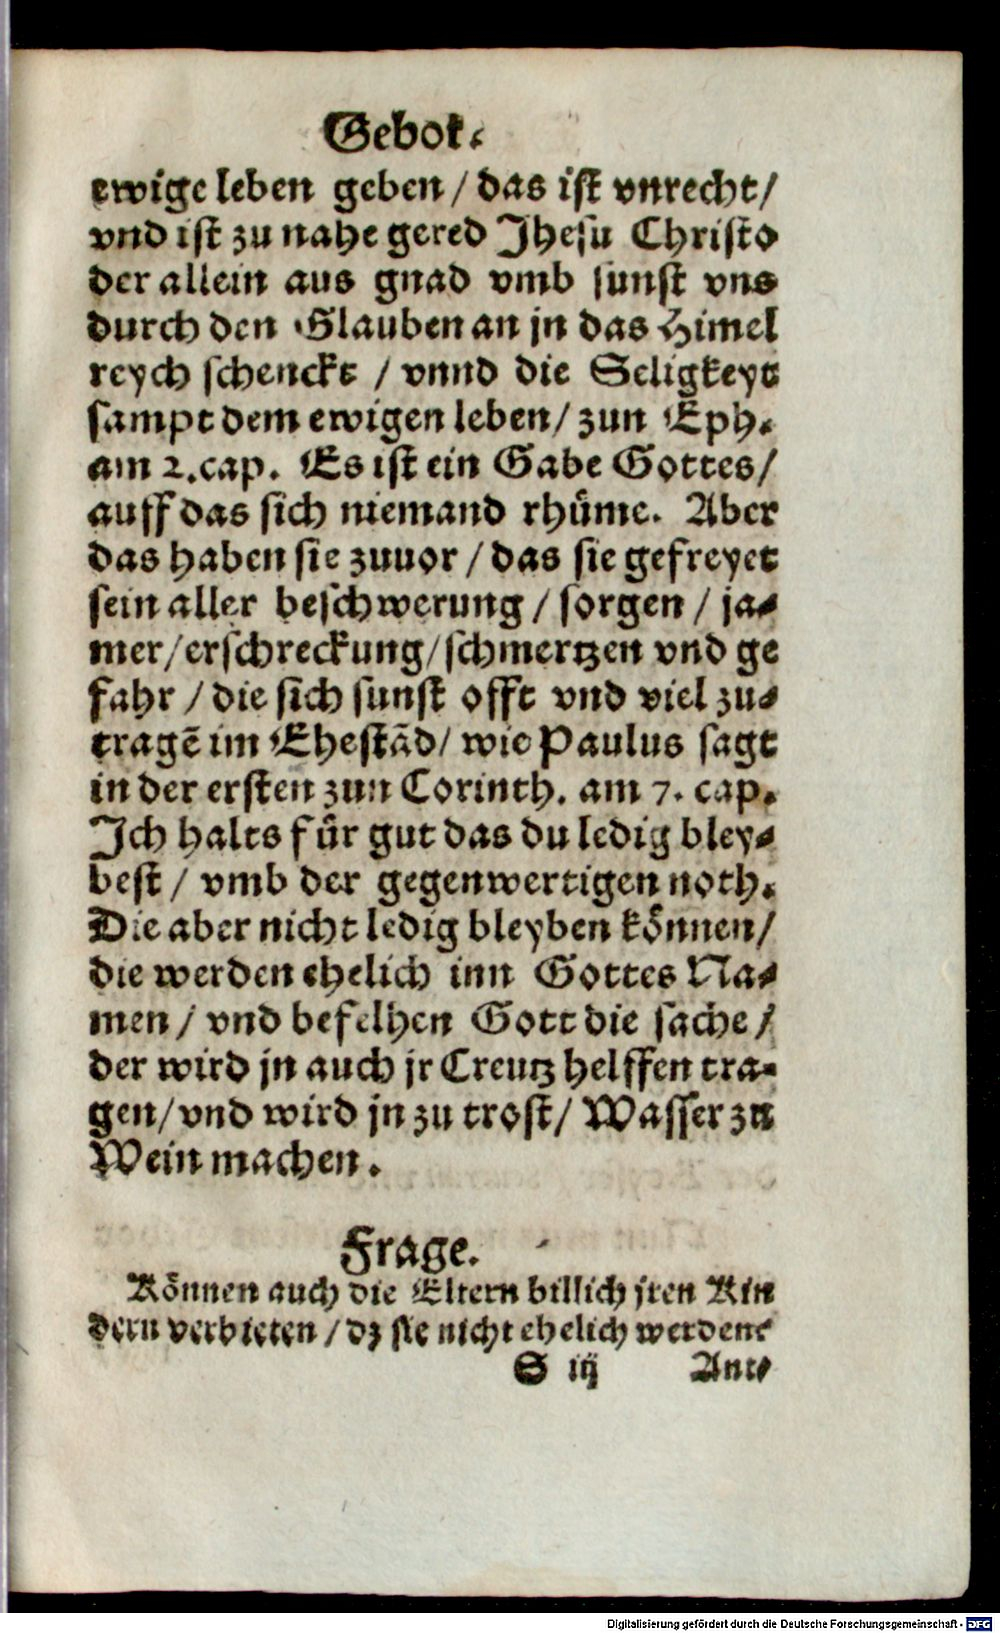 Gebot.
ewige leben geben / das ist vnrecht /
vnd ist zu nahe gered Jhesu Christo
der allein aus gnad vmb sunst vns
durch den Glauben an jn das Himel
reych schenckt / vnnd die Seligkeyt
sampt dem ewigen leben / zun Eph.
am 2. cap. Es ist ein Gabe Gottes /
auff das sich niemand rhüme. Aber
das haben sie zuuor / das sie gefreyet
sein aller beschwerung / sorgen / ja-
mer / erschreckung / schmertzen vnd ge
fahr / die sich sunst offt vnd viel zu-
tragē im Ehestād / wie Paulus sagt
in der ersten zun Corinth. am 7. cap.
Ich halts für gut das du ledig bley-
best / vmb der gegenwertigen noth.
Die aber nicht ledig bleyben können /
die werden ehelich inn Gottes Na-
men / vnd befelhen Gott die sache /
der wird jn auch jr Creutz helffen tra-
gen / vnd wird jn zu trost / Wasser zu
Wein machen.
Frage.
Können auch die Eltern billich jren Kin
dern verbieten / dz sie nicht ehelich werden?
S iij Ant-
Digitalisierung gefördert durch die Deutsche Forschungsgemeinschaft - DFG